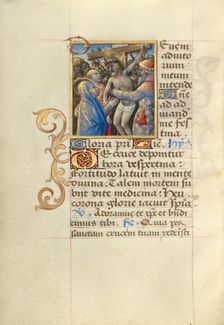 Deus in
adiuto
rium
meum
intende
Dñe
ad ad
iuuand
me fes
tina.
Gloria pri
De cruce deponitur
hora vespertina:
fortitudo latuit in mente
diuina. Talem mortem
subiit vite medicina: heu
corona glorie iacuit
Adoramus te xpe et bñdi
cimus tibi. Quia per
sanctam crucem tuam redemisti